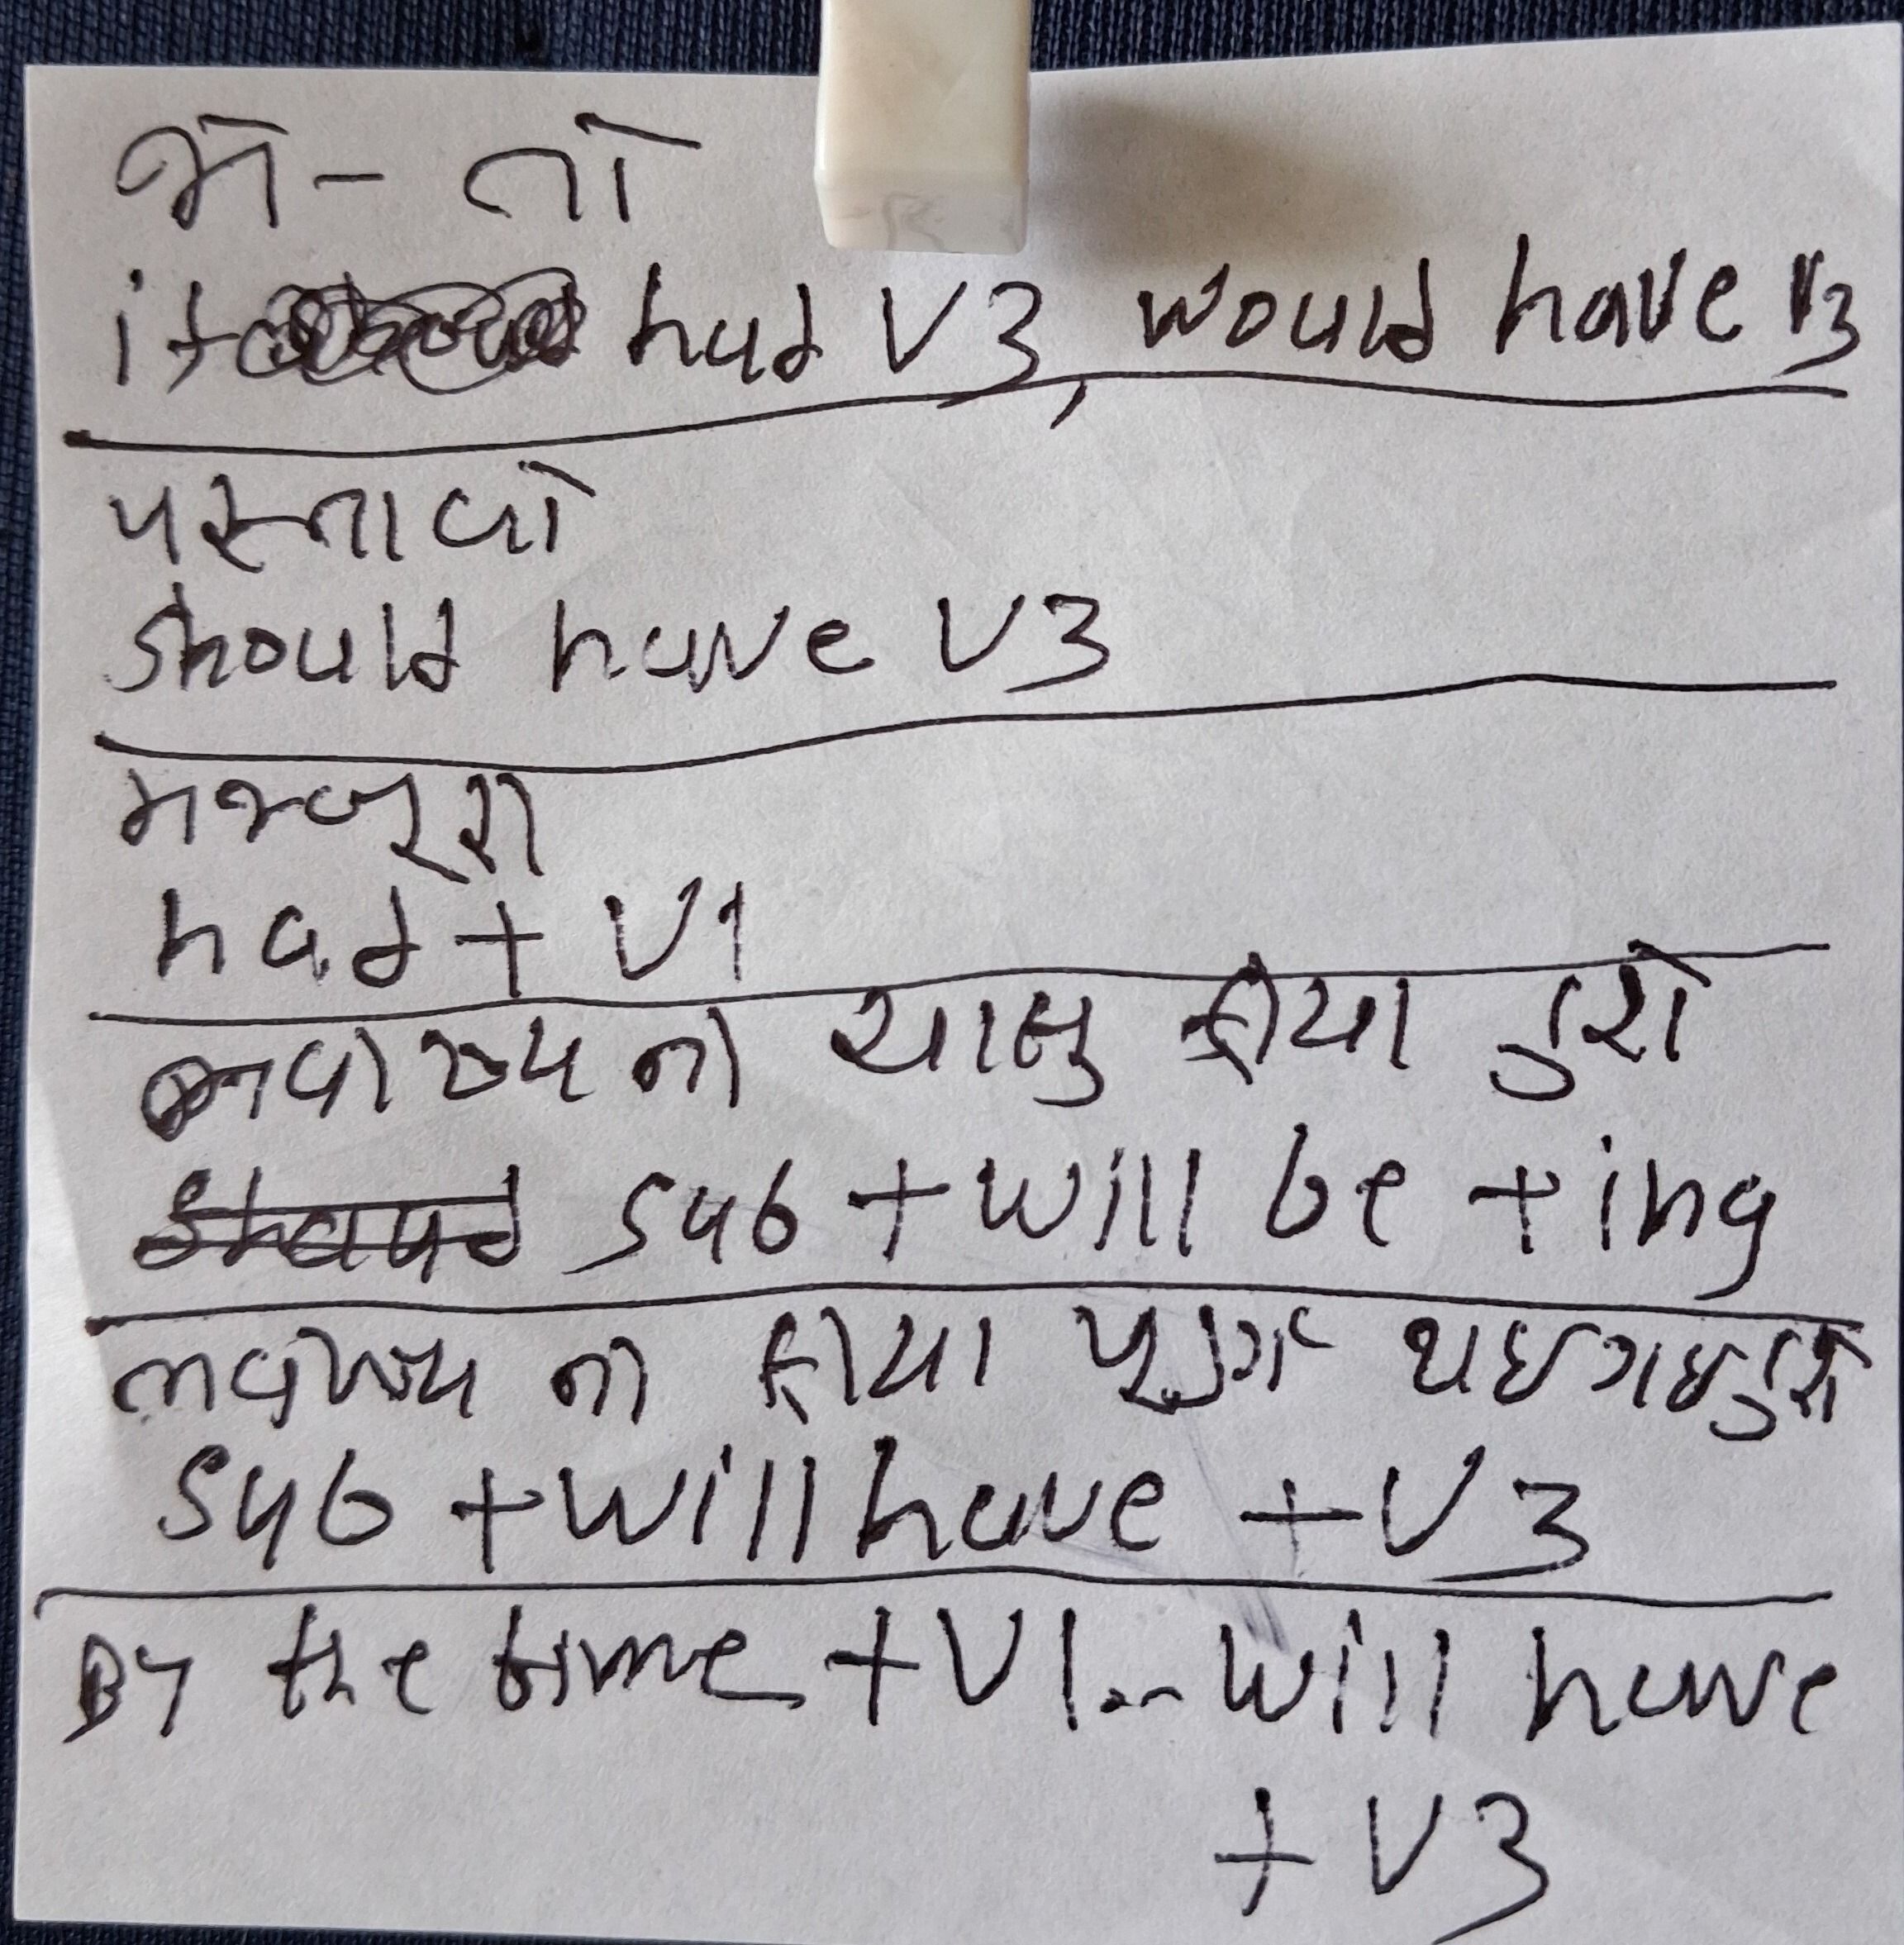 જો - તો
if had V3, would have V3
પસ્તાવો
should have V3
મજબૂરી
had + V1
ભવીષ્ય ની ચાલુ ક્રીયા હશે
sub + will be + ing
ભવીષ્ય ની ક્રીયા પૂર્ણ થઇ ગઇ હશે
sub + will have + V3
By the time + V1... will have
+ V3